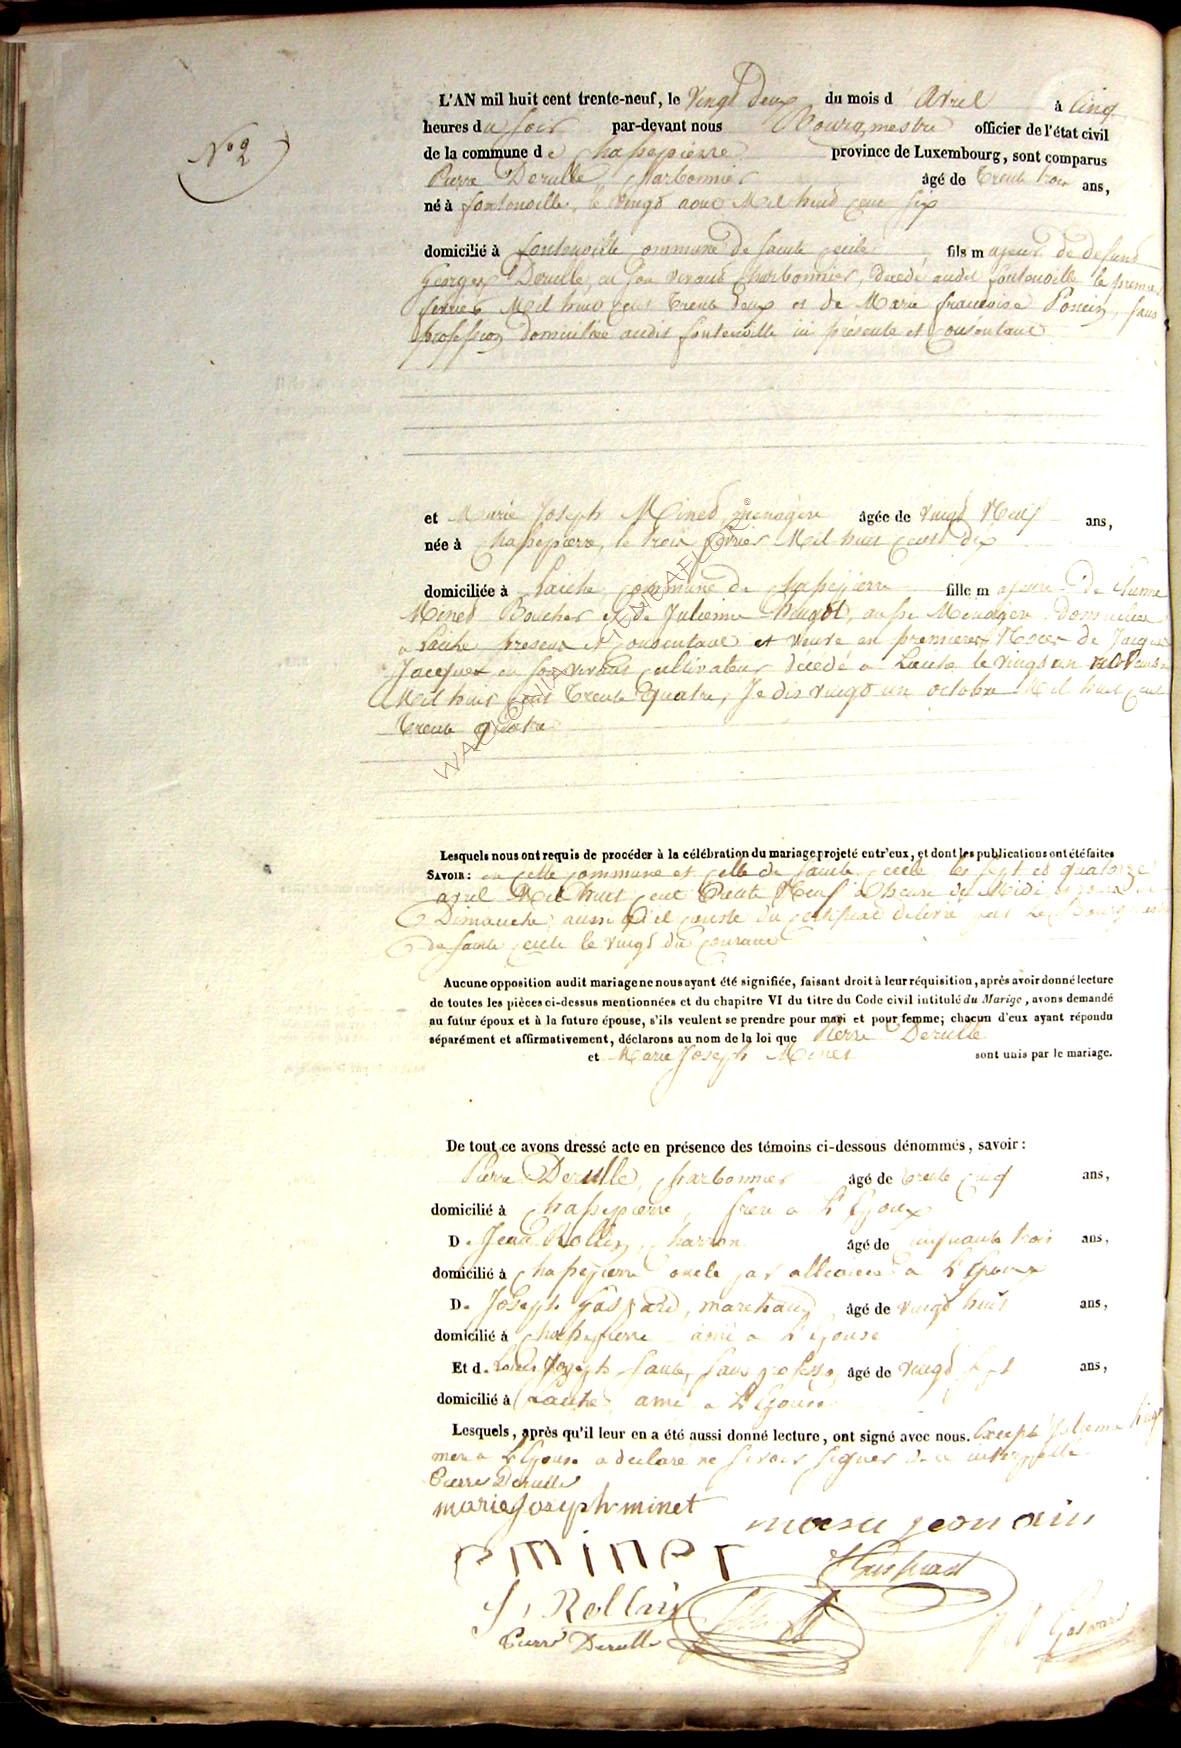 N° 2
L'AN mil huit cent trente-neuf, le vingt deux du mois d'Avril à cinq
heures du soir par-devant nous Bourgmestre officier de l'état civil
de la commune de Chassepierre province de Luxembourg, sont comparus
Pierre Derulle, Charbonnier âgé de trente trois ans,
né à fontenoille, le vingt aout Mil huit cent six
domicilié à fontenoille commune de Sainte Cecile fils majeur de defunt
Georges Derulle, en son vivant Charbonnier, decedé audit fontenoille le premier
fevrier Mil huit cent trente deux et de Marie francoise Poncin, sans
profession domiciliée audit fontenoille ici présente et consentante
et Marie Joseph Minet ménagère âgée de vingt Neuf ans,
née à Chassepierre, le trois fevrier Mil huit cent dix
domiciliée à Laiche commune de Chassepierre fille majeure de Etienne
Minet Boucher et de Julienne Hugot, aussi Menagère domiciliés
a Laiche present et consentant et veuve en premieres Noces de Jacques
Jacques en son vivant cultivateur décedé a Laiche le vingt un
Mil huit cent trente quatre, Je dis vingt un octobre Mil huit cent
trente quatre
Lesquels nous ont requis de procéder à la célébration du mariage projeté entr'eux, et dont les publications ont été faites
SAVOIR: en celle commune et celle de Sainte Cecile les sept et quatorze
avril Mil huit cent trente Neuf à l'heure de Midi
Dimanche, aussi qu'il conste du certificat délivré par le Bourgmestre
de Sainte Cecile le vingt du Courant
Aucune opposition audit mariage ne nous ayant été signifiée, faisant droit à leur réquisition, après avoir donné lecture
de toutes les pièces ci-dessus mentionnées et du chapitre VI du titre du Code civil intitulé du Marige, avons demandé
au futur époux et à la future épouse, s'ils veulent se prendre pour mari et pour femme; chacun d'eux ayant répondu
séparément et affirmativement, déclarons au nom de la loi que Pierre Derulle
et Marie Joseph Minet sont unis par le mariage.
De tout ce avons dressé acte en présence des témoins ci-dessous dénommés, savoir:
Pierre Derulle, charbonnier âgé de trente cinq ans,
domicilié à Chassepierre, frere a l'Epoux
D. Jean Rollin, charron âgé de cinquante trois ans,
domicilié à Chassepierre oncle par alliance a l'Epoux
D. Joseph Gaspard, marchand âgé de vingt huit ans,
domicilié à Chassepierre ami a l'Epouse
Et d. Louis Joseph sans profession âgé de vingt sept ans,
domicilié à Laiche ami a l'Epouse
Lesquels, après qu'il leur en a été aussi donné lecture, ont signé avec nous. Excepté Julienne Hugot
mere a l'Epouse a déclaré ne savoir signer de ce interpellée
Pierre Derulle
marie Joseph minet
e minet
J, Rollin
Pierre Derulle
Gaspard
WALLONIA GENEAFLOR ©